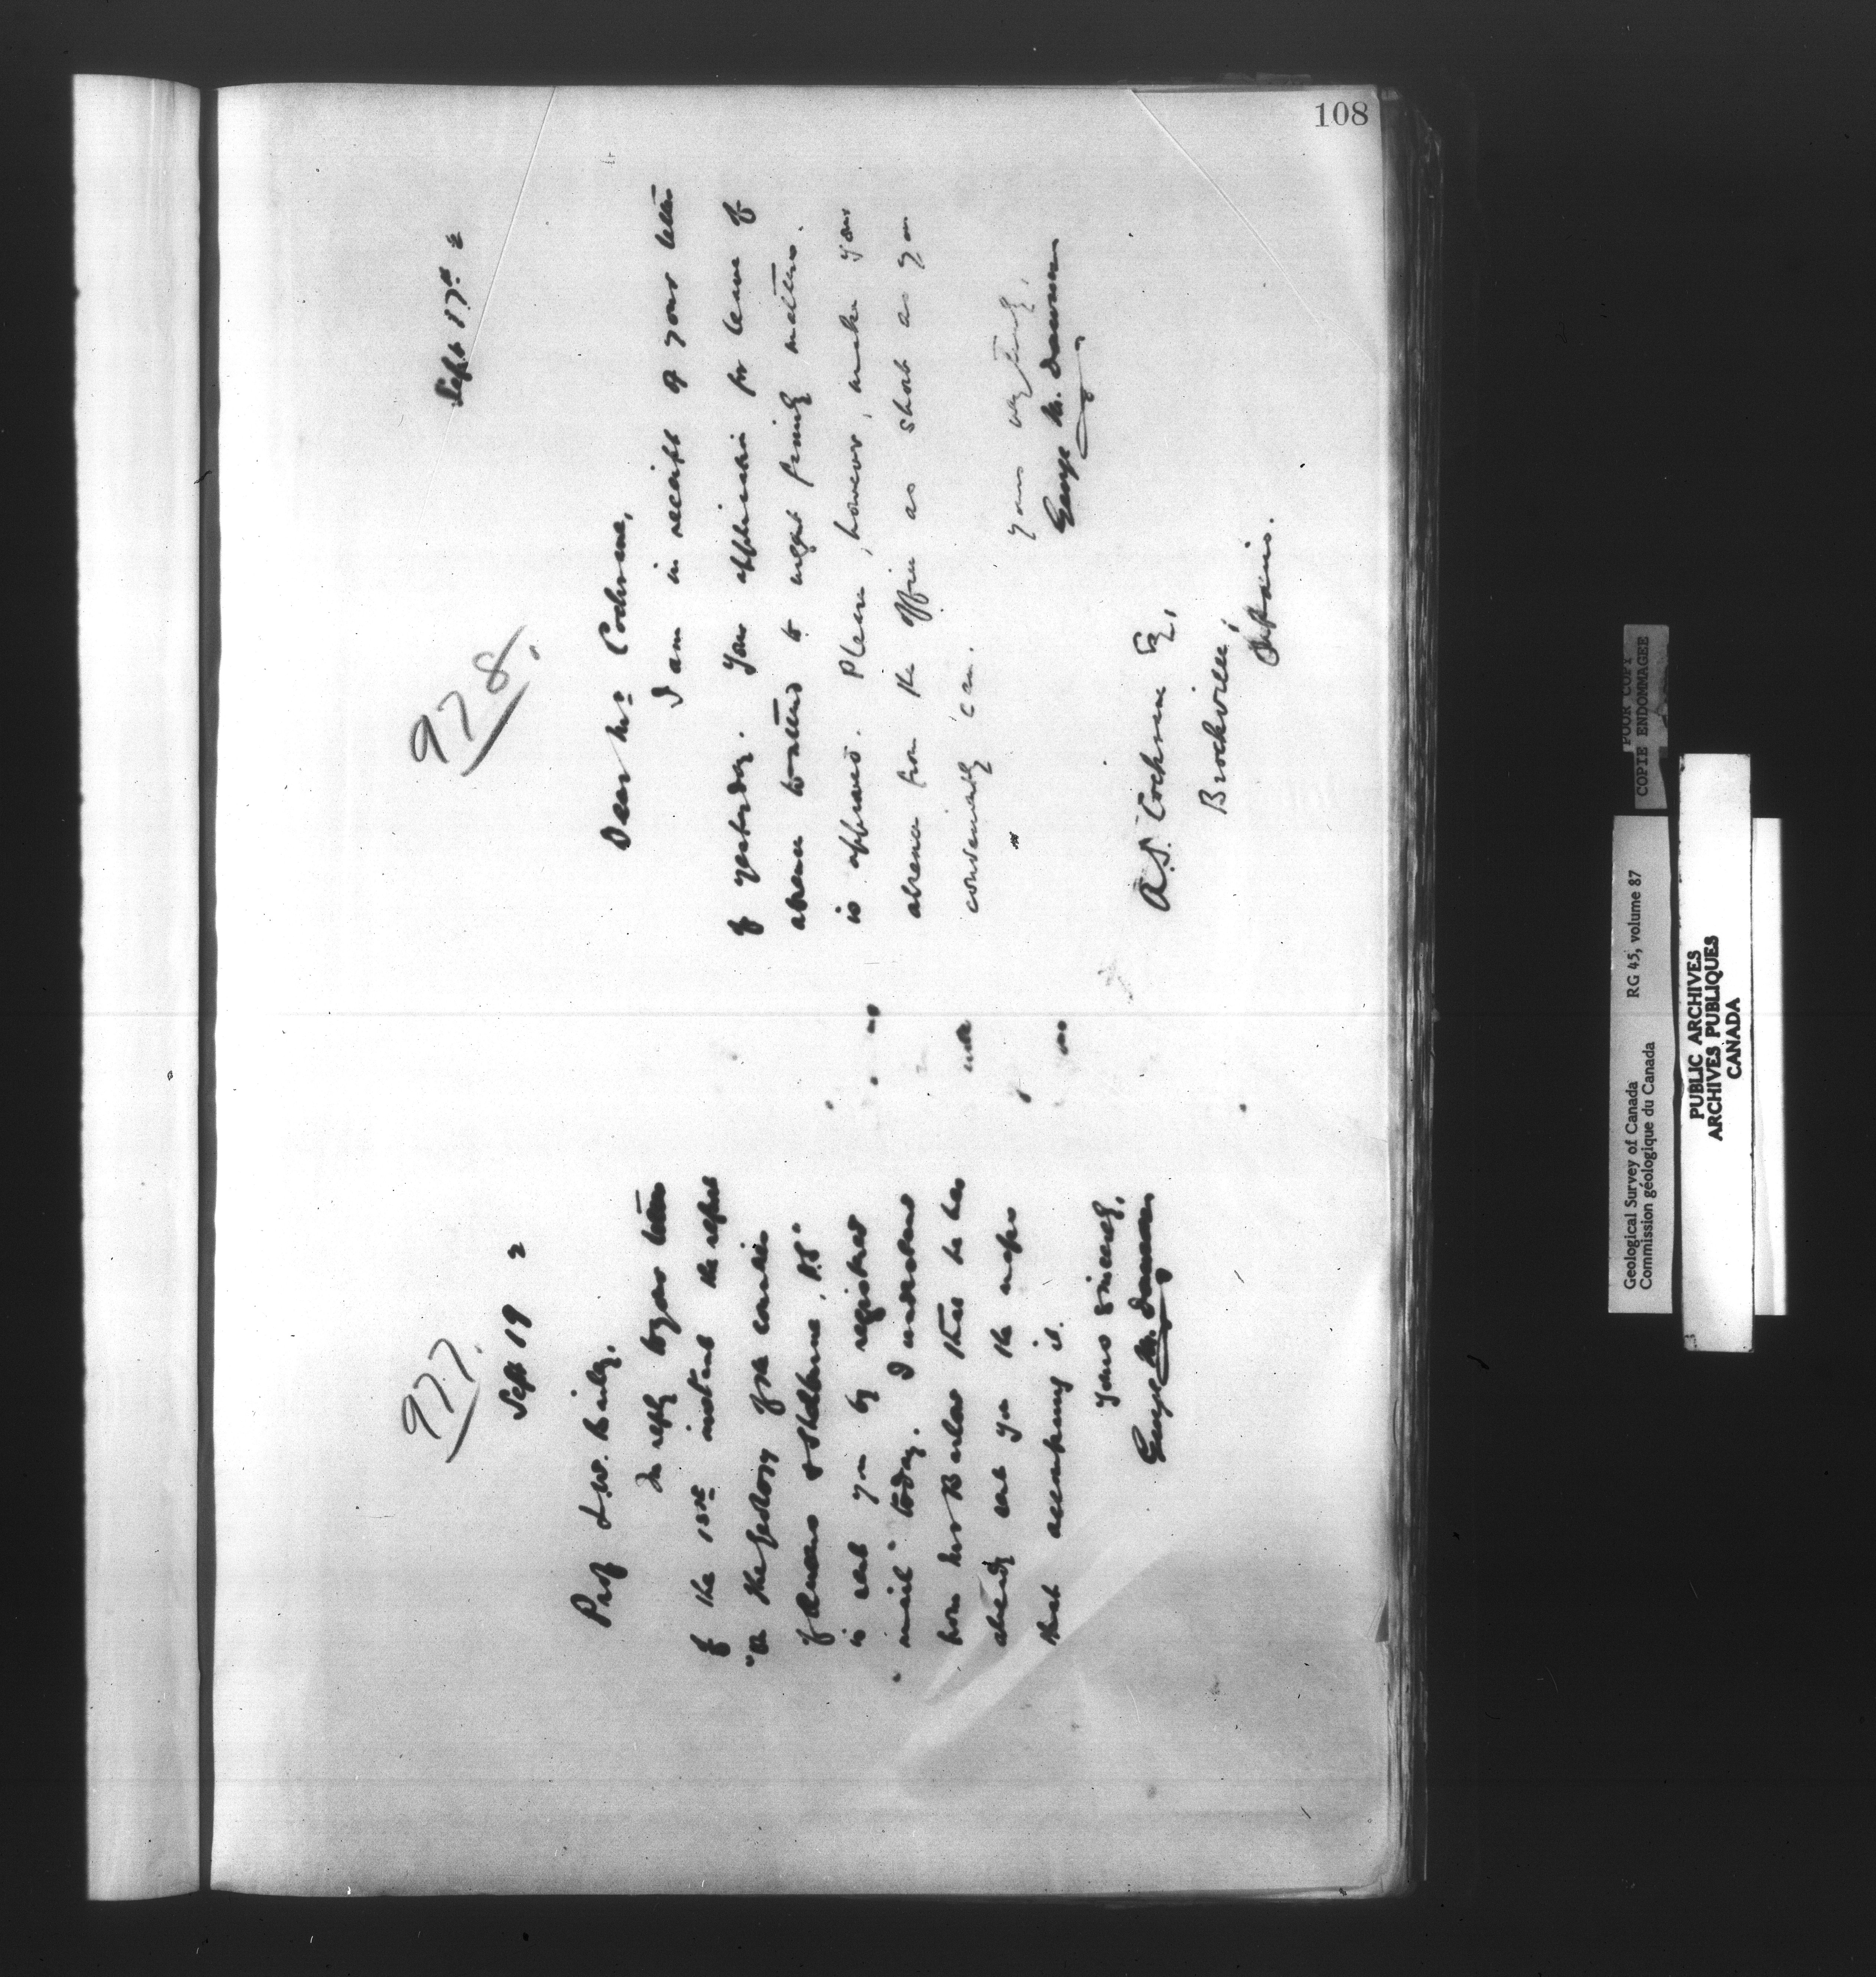 108
977.
Sept 19 2
Prof L.W. Bailey,
In reply to your letter
of the 15th instant the report
"On the Geology of the Counties
of Queens & Shelburne, N.S."
is sent you by registered
mail today. I understand
from Mr Barlow that he has
already sent you the maps
that accompany it.
Yours sincerely,
George M. Dawson
978.
Sept 17th 2
Dear Mr Cochrane,
I am in receipt of your letter
of yesterday. Your application for leave of
absence to attend to urgent family matters
is approved. Please, however, make your
absence from the office as short as you
conveniently can.
Yours very truly,
George M. Dawson
A.S. Cochrane Esq,
Brockville
Ontario.
Geological Survey of Canada RG 45, volume 87
Commission géologique du Canada
POOR COPY
COPIE ENDOMMAGEE
PUBLIC ARCHIVES
ARCHIVES PUBLIQUES
CANADA